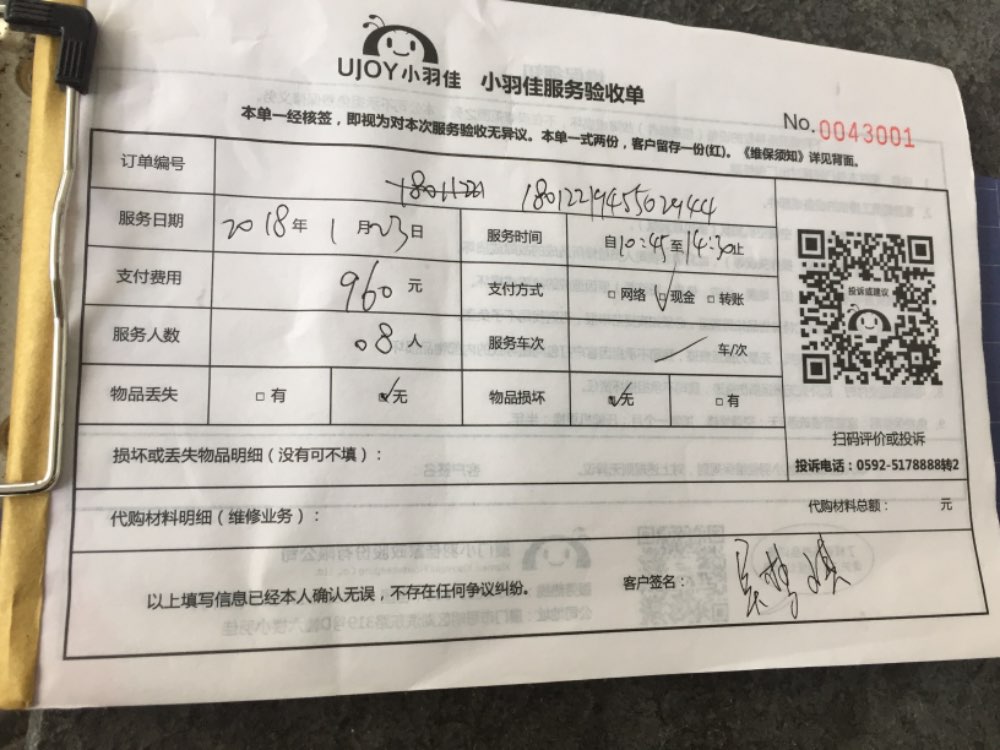 UJOY小羽佳 小羽佳服务验收单
No.0043001
本单一经核签，即视为对本次服务验收无异议。本单一式两份，客户留存一份(红)。《维保须知》详见背面。
订单编号 18012219455629444
服务日期 2018年 1月23日 服务时间 自10:45至14:30止
支付费用 960元 支付方式 □网络 □现金 □转账
服务人数 08人 服务车次 车/次
物品丢失 □有 □无 物品损坏 □无 □有
投诉或建议
扫码评价或投诉
投诉电话：0592-5178888转2
损坏或丢失物品明细（没有可不填）：
代购材料明细（维修业务）： 代购材料总额： 元
以上填写信息已经本人确认无误，不存在任何争议纠纷。 客户签名：